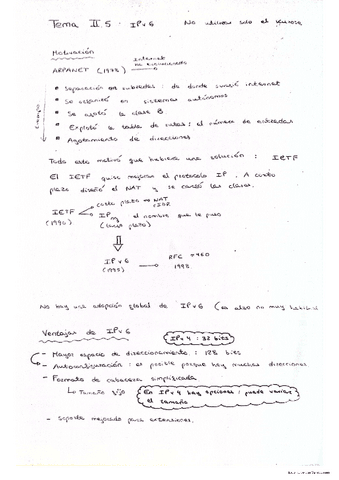 Tema II.5 - IPv6 No utilizar solo el
Motivación
ARPANET (1973) Internet
• Separación en subredes : de donde surgió internet
• Se organizó en sistemas autónomos
• Se agotó la clase B
• Explotó la tabla de rutas : el número de entradas
• Agotamiento de direcciones
Todo esto motivó que hubiera una solución : IETF
El IETF quiso mejorar el protocolo IP. A corto
plazo diseñó el NAT y se cambió las clases.
corto plazo → NAT
IETF → IPng el nombre que le puso
(1990) (largo plazo)
IPv6 → RFC 2460
(1995) 1998
No hay una adopción global de IPv6 (es algo no muy habitual
Ventajas de IPv6 IPv4 : 32 bits
- Mayor espacio de direccionamiento : 128 bits
- Autoconfiguración : es posible porque hay muchas direcciones
- Formato de cabecera simplificada
↳ Tamaño fijo En IPv4 hay opciones : puede variar
el tamaño
- Soporte mejorado para extensiones.